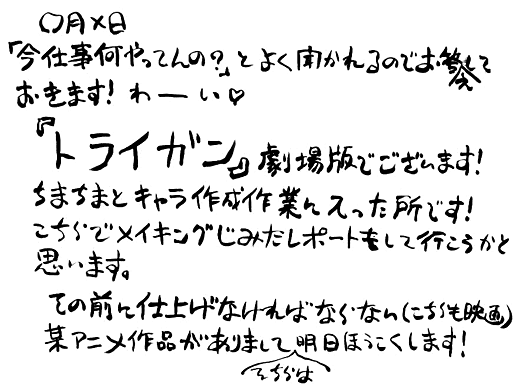 〇月×日
「今仕事何やってんの?」とよく聞かれるのでお答えして
おきます!わーい♡
『トライガン』劇場版でございます!
ちまちまとキャラ作成作業に入った所です!
こちらでメイキングじみたレポートもして行こうかと
思います。
その前に仕上げなければならない(こちらも映画)
某アニメ作品がありまして明日ほうこくします!
そちらは